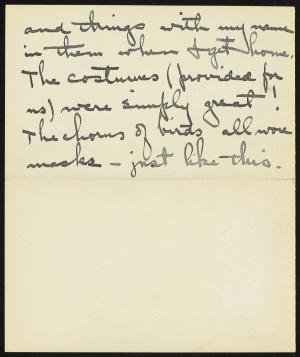 and things with my name
in them when I get home.
The costumes (provided for
us) were simply great!
The chorus of birds all wore
masks - just like this.